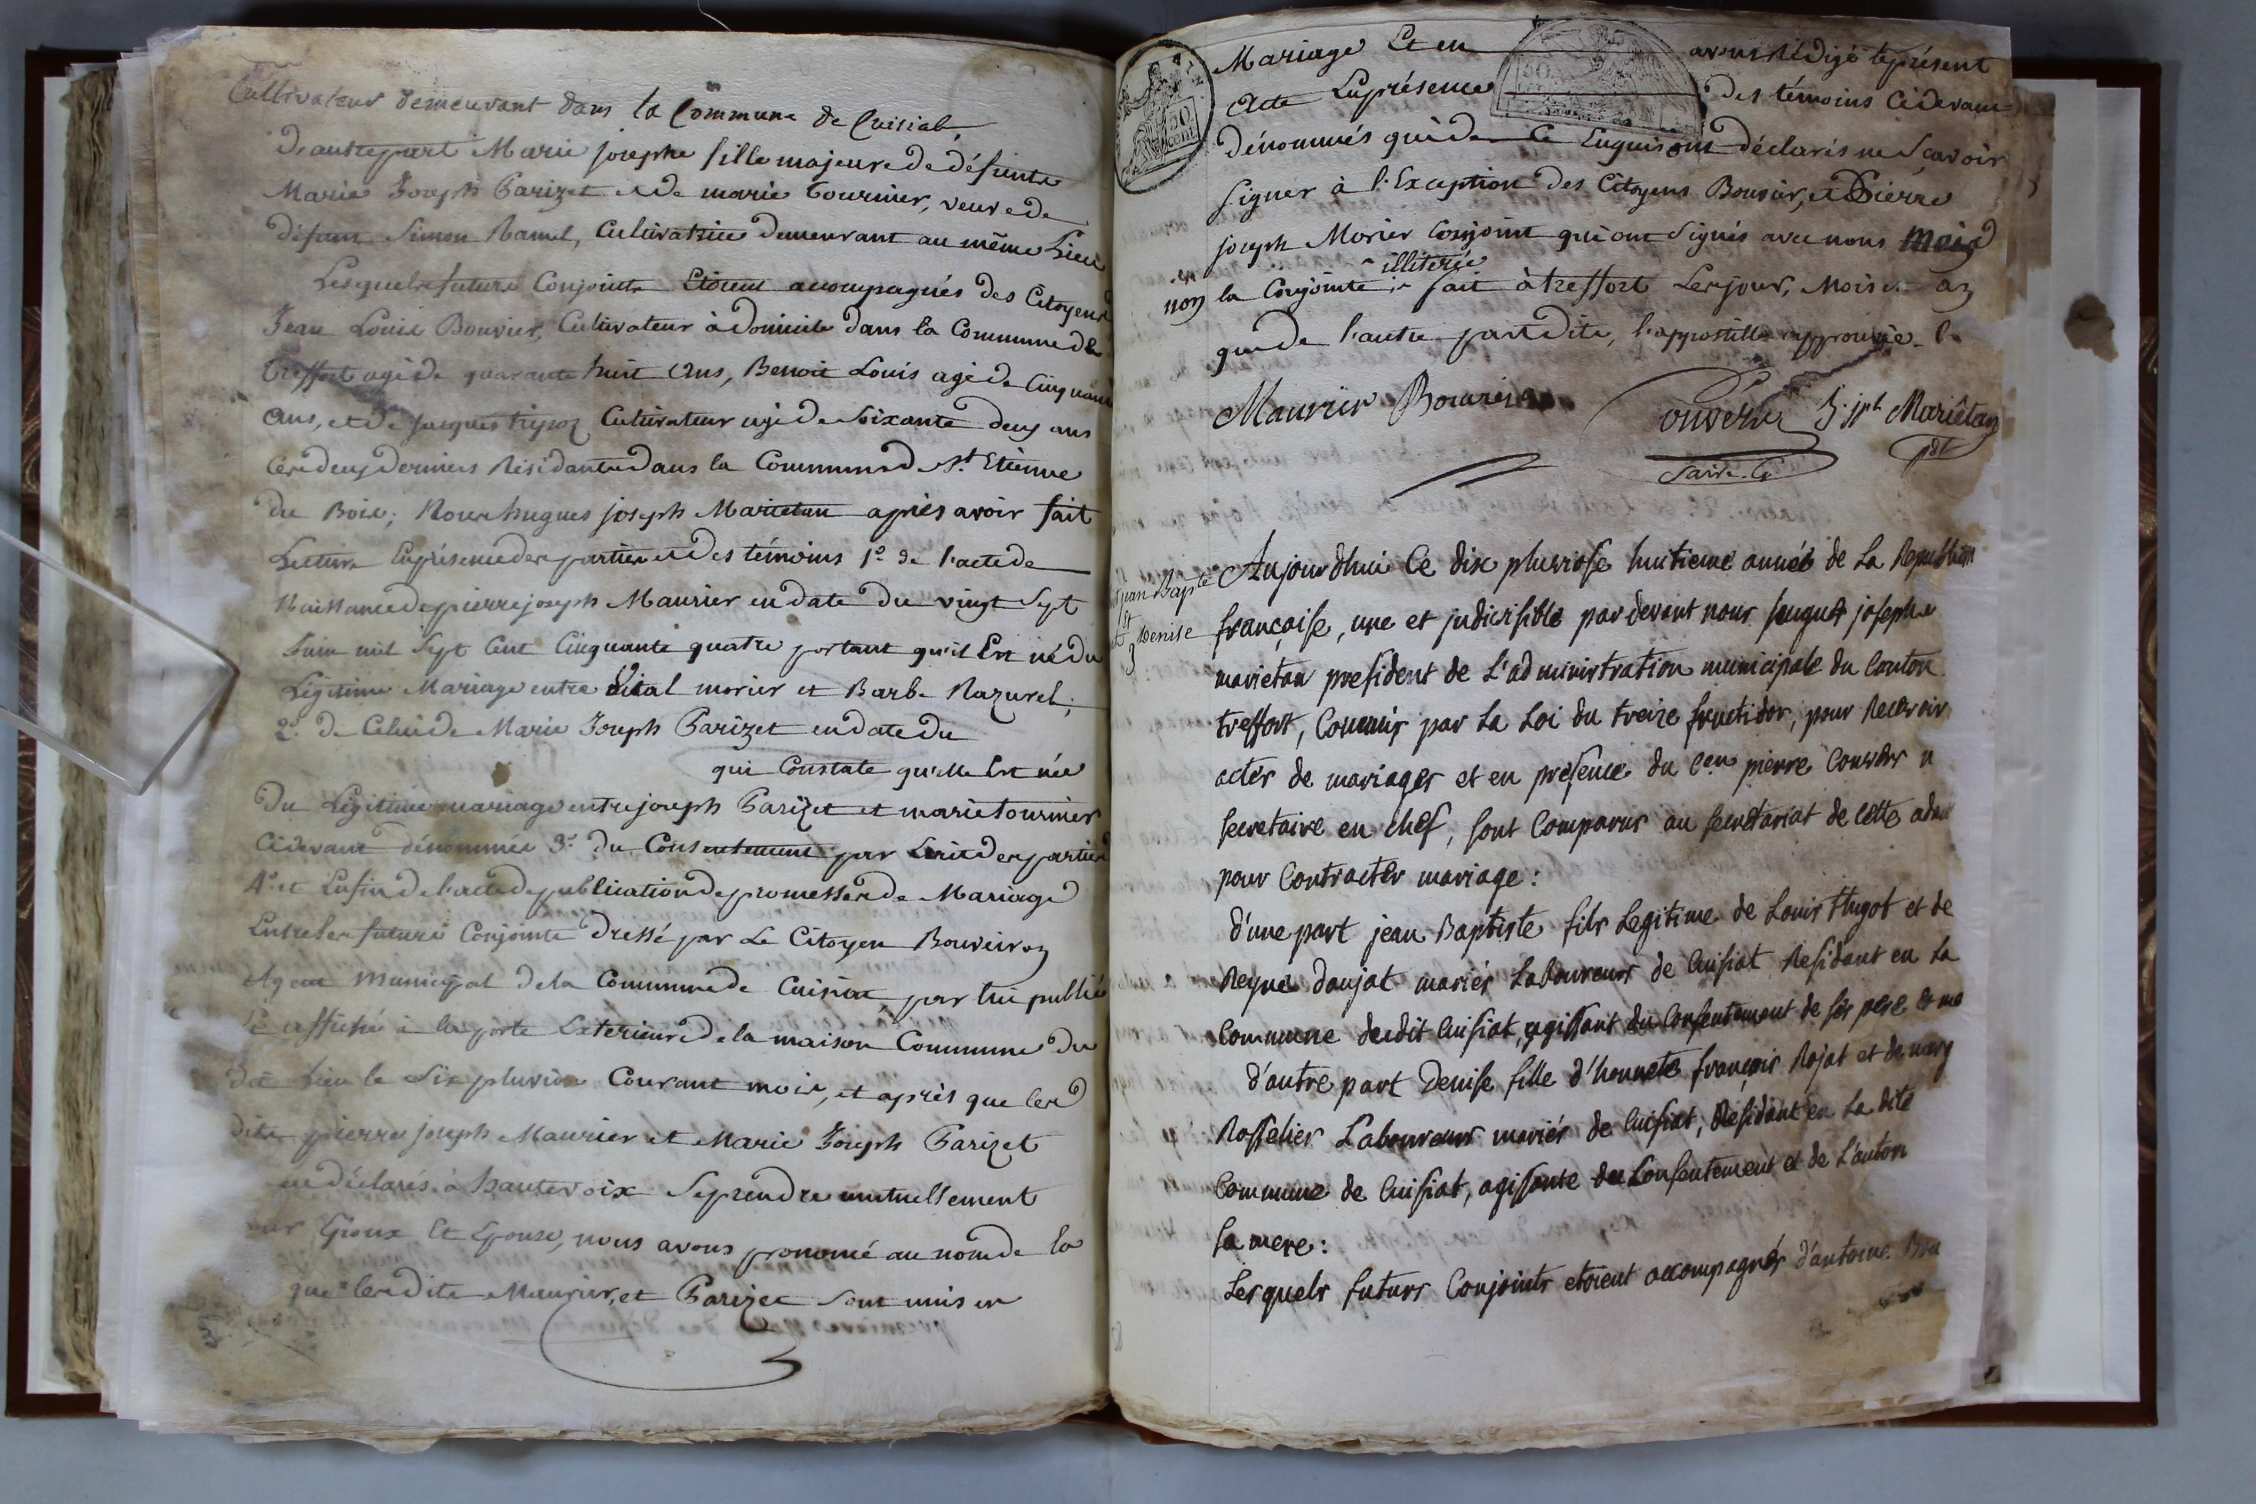 Cultivateur demeurant dans la Commune de Cuisiat,
D'autre part Marie josephe fille majeure de défunte
Marie Joseph Parizet et de marie Tournier, veuve de
défunt Simon Ramel, Cultivatrice demeurant au même Lieu
Lesquels futurs Conjoints Etoient accompagnés des Citoyens
Jean Louis Bouvier, Cultivateur à domicile dans la Commune de
Treffort agé de quarante huit ans, Benoit Louis agé de Cinquante
ans, et de Jacques Cultivateur agé de Soixante deux ans
Ces deux derniers Résidants dans la Commune de St. Etienne
du Bois; Nous hugues joseph Marietan après avoir fait
Lecture En présence des parties et des témoins 1º de l'acte de
Naissance de pierre joseph Maurier en date du vingt Sept
Juin mil Sept Cent Cinquante quatre portant qu'il Est né du
Légitime Mariage entre Vital morier et Barbe Razurel,
2º de Celui de Marie Joseph Parizet en date du
qui Constate qu'elle Est née
Du Légitime mariage entre joseph Parizet et marie tournier
Cidevant dénommée 3º du Consentement par Ecrit des parties
4º et Enfin de l'acte de publication de promesses de Mariage
Entre les futurs Conjoints dressé par Le Citoyen Bouveiron
Agent Municipal de la Commune de Cuisiat, par lui publié
affiché à la porte Exterieure de la maison Commune du
dit Lieu le Six pluviose Courant mois, et après que les
dits pierre joseph Maurier et Marie Joseph Parizet
déclarés à haute voix Se prendre mutuellement
Epoux Et Epouse, nous avons prononcé au nom de la
que lesdits Maurier, et Parizet Sont unis en
Mariage Et en avons Rédigé le présent
Acte En présence des témoins Cidevant
dénommés qui de ce Enquis ont déclarés ne Scavoir
Signer à l'Exception des Citoyens Bouvier, et Pierre
joseph Morier Conjoint qui ont Signés avec nous
non la Conjointe illiterée fait à treffort Les jour, Mois et an
que de l'autre part dite, l'appostille approuvée
Maurier Bouvier Couvers h jph Marietan
Sair. Ch pdt
jean Bapte
et
Denise
Aujourdhui Ce dix pluviose huitieme année de La Republique
françoise, une et indivisible par devant nous hugues josephe
marietan president de L'administration municipale du Canton
treffort, Commis par La Loi du treize fructidor, pour Recevoir
actes de mariages et en presence du Cen pierre Couvers
secretaire en chef, sont Comparus au secretariat de Cette
pour Contracter mariage:
d'une part jean Baptiste fils Legitime de Louis Hugot et de
Reyne daujat mariés Laboureurs de Cuisiat Residant en La
Commune dudit Cuisiat, agissant du Consentement de ses pere et me
d'autre part Denise fille d'honnete françois Rojat et de mary
Rosselier Laboureurs mariés de Cuisiat, Residant en La dite
Commune de Cuisiat, agissante du Consentement et de L'autori
sa mere:
Lesquels futurs Conjoints etoient accompagnés d'antoine